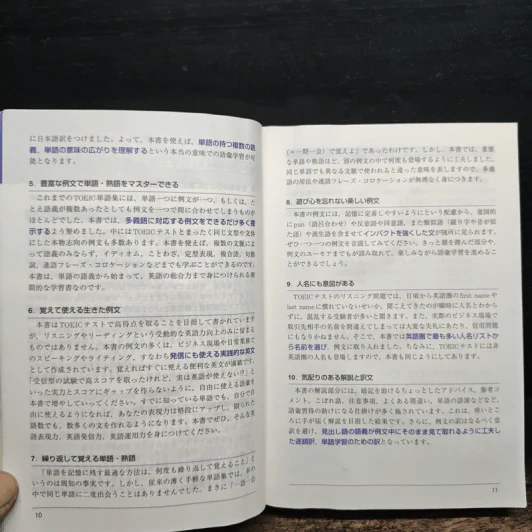 に日本語訳をつけました。よって、本書を使えば、単語の持つ複数の語
義、単語の意味の広がりを理解するという本当の意味での語彙学習が可
能となります。
5. 豊富な例文で単語・熟語をマスターできる
これまでのTOEIC単語集には、単語一つに例文が一つ、もしくは、た
とえ語義が複数あったとしても例文を一つで間に合わせてしまうものが
ほとんどでした。本書では、多義語に対応する例文をできるだけ多く提
示するよう努めました。中にはTOEICテストとまったく同じ文型や文体
にした本物志向の例文も多数あります。本書を使えば、複数の文脈によ
って語義のみならず、イディオム、ことわざ、定型表現、複合語、句動
詞、連語フレーズ・コロケーションなどまでも学ぶことができるのです。
本書は、単語の語義から始まって、英語の総合力まで身につけられる画
期的な学習書なのです。
6. 覚えて使える生きた例文
本書はTOEICテストで高得点を取ることを目指して書かれています
が、リスニングやリーディングという受動的な英語力向上のみに留まる
ものではありません。本書の例文の多くは、ビジネス現場や日常業務で
のスピーキングやライティング、すなわち発信にも使える実践的な英文
として作成されています。覚えればすぐに使える便利な英文が満載です。
「受信型の試験で高スコアを取ったけれど、実は英語が使えない?」と
いった実力とスコアにギャップを作らないように、自由に使える語彙を
本書で増やしていってください。すでに知っている単語でも、自分で自
由に使えるようになれば、あなたの表現力は格段にアップし、限られた
語数でも、数多くの文を作れるようになります。本書でぜひ、そんな英
語表現力、英語発信力、英語運用力を身につけてください。
7. 繰り返して覚える単語・熟語
「単語を記憶に残す最適な方法は、何度も繰り返して覚えること」と
いうのは周知の事実です。しかし、従来の薄く手軽な単語集では、本の
中で同じ単語に二度出会うことはありませんでした。まさに「一語一会
10
(=一期一会)で覚えよ」であったわけです。しかし、本書では、重要
な単語や熟語ほど、別の例文の中で何度も登場するように工夫しました。
同じ単語でも異なる文脈で使われると違った意味を表しますので、多義
語の用法や連語フレーズ・コロケーションが無理なく身につきます。
8. 遊び心を忘れない楽しい例文
本書の例文には、記憶に定着しやすいようにという配慮から、意図的
にpun(語呂合わせ)や反意語や同意語、また類似語(綴り字や音が似
た語)や派生語を含ませてインパクトを強くした文が随所に見られます。
ぜひ一つ一つの例文を音読してみてください。きっと韻を踏んだ部分や、
例文のユーモアまでもが読み取れて、楽しみながら語彙学習を進めるこ
とができるでしょう。
9. 人名にも意図がある
TOEICテストのリスニング問題では、日頃から英語圏のfirst nameや
last nameに慣れていないせいか、聞こえてきたのが瞬時に人名とわから
ずに、混乱する受験者が多いと聞きます。また、実際のビジネス現場で
取引先相手の名前を間違えてしまっては大変な失礼にあたり、信用問題
にもなりかねません。そこで、本書では英語圏で最も多い人名リストか
ら名前を選び、例文に取り入れました。ちなみに、TOEICテストには非
英語圏の人名も登場しますので、本書も同じようにしてあります。
10. 気配りのある解説と訳文
本書の解説部分には、暗記を助けるちょっとしたアドバイス、参考コ
メント、こぼれ話、注意事項、よくある間違い、単語の語源などなど、
語彙習得の助けになる仕掛けが多く施されています。これは、痒いとこ
ろに手が届く解説を目指した結果です。さらに、例文の訳はなるべく意
訳を避け、見出し語の語義が例文中にそのまま見て取れるように工夫し
た逐語訳、単語学習のための訳となっています。
11